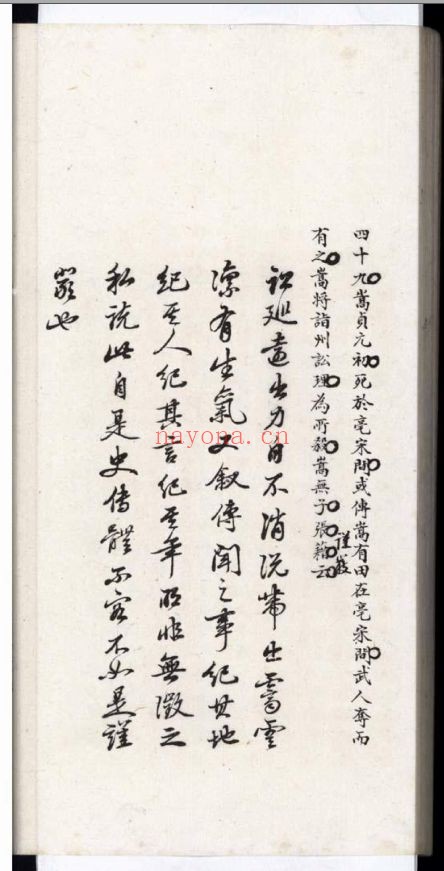 四十九嵩貞元初死於亳宋間或傳嵩有田在亳宋間武人奪而
謹嚴
有之嵩將詣州訟理為所殺嵩無子張籍云
敘巡遠出力自不消說帶出霽雲
凜有生氣又敘傳聞之事紀其地
紀其人紀其言紀其年明非無徵之
私說此自是史傳體不容不如是謹
嚴也
nayona.cn